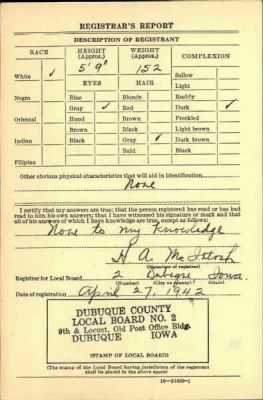 REGISTRAR'S REPORT
DESCRIPTION OF REGISTRANT
RACE HEIGHT (Approx.) WEIGHT (Approx.) COMPLEXION
5' 9" 152
White ✓ Sallow
EYES HAIR Light
Negro Blue Blonde Ruddy
Gray ✓ Red Dark ✓
Oriental Hazel Brown Freckled
Brown Black Light brown
Indian Black Gray ✓ Dark brown
Bald Black
Filipino
Other obvious physical characteristics that will aid in identification
None
I certify that my answers are true; that the person registered has read or has had
read to him his own answers; that I have witnessed his signature or mark and that all
of his answers of which I have knowledge are true, except as follows:
None to my Knowledge
H A. McIntosh
(Signature of registrar)
Registrar for Local Board 2 Dubuque Iowa
(Number) (City or county)
Date of registration April 27, 1942
DUBUQUE COUNTY
LOCAL BOARD NO. 2
9th & Locust, Old Post Office Bldg.
DUBUQUE IOWA
(STAMP OF LOCAL BOARD)
(The stamp of the Local Board having jurisdiction of the registrant
shall be placed in the above space)